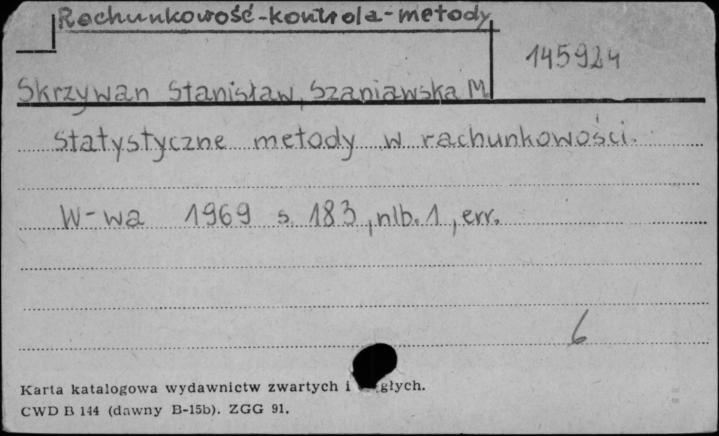 Rachunkowość-kontrola-metody
145924
Skrzywan Stanisław, Szaniawska M.
Statystyczne metody w rachunkowości.
W-wa 1969 s. 183, nlb. 1, err.
6
Karta katalogowa wydawnictw zwartych i głych.
CWD B 144 (dawny B-15b). ZGG 91.